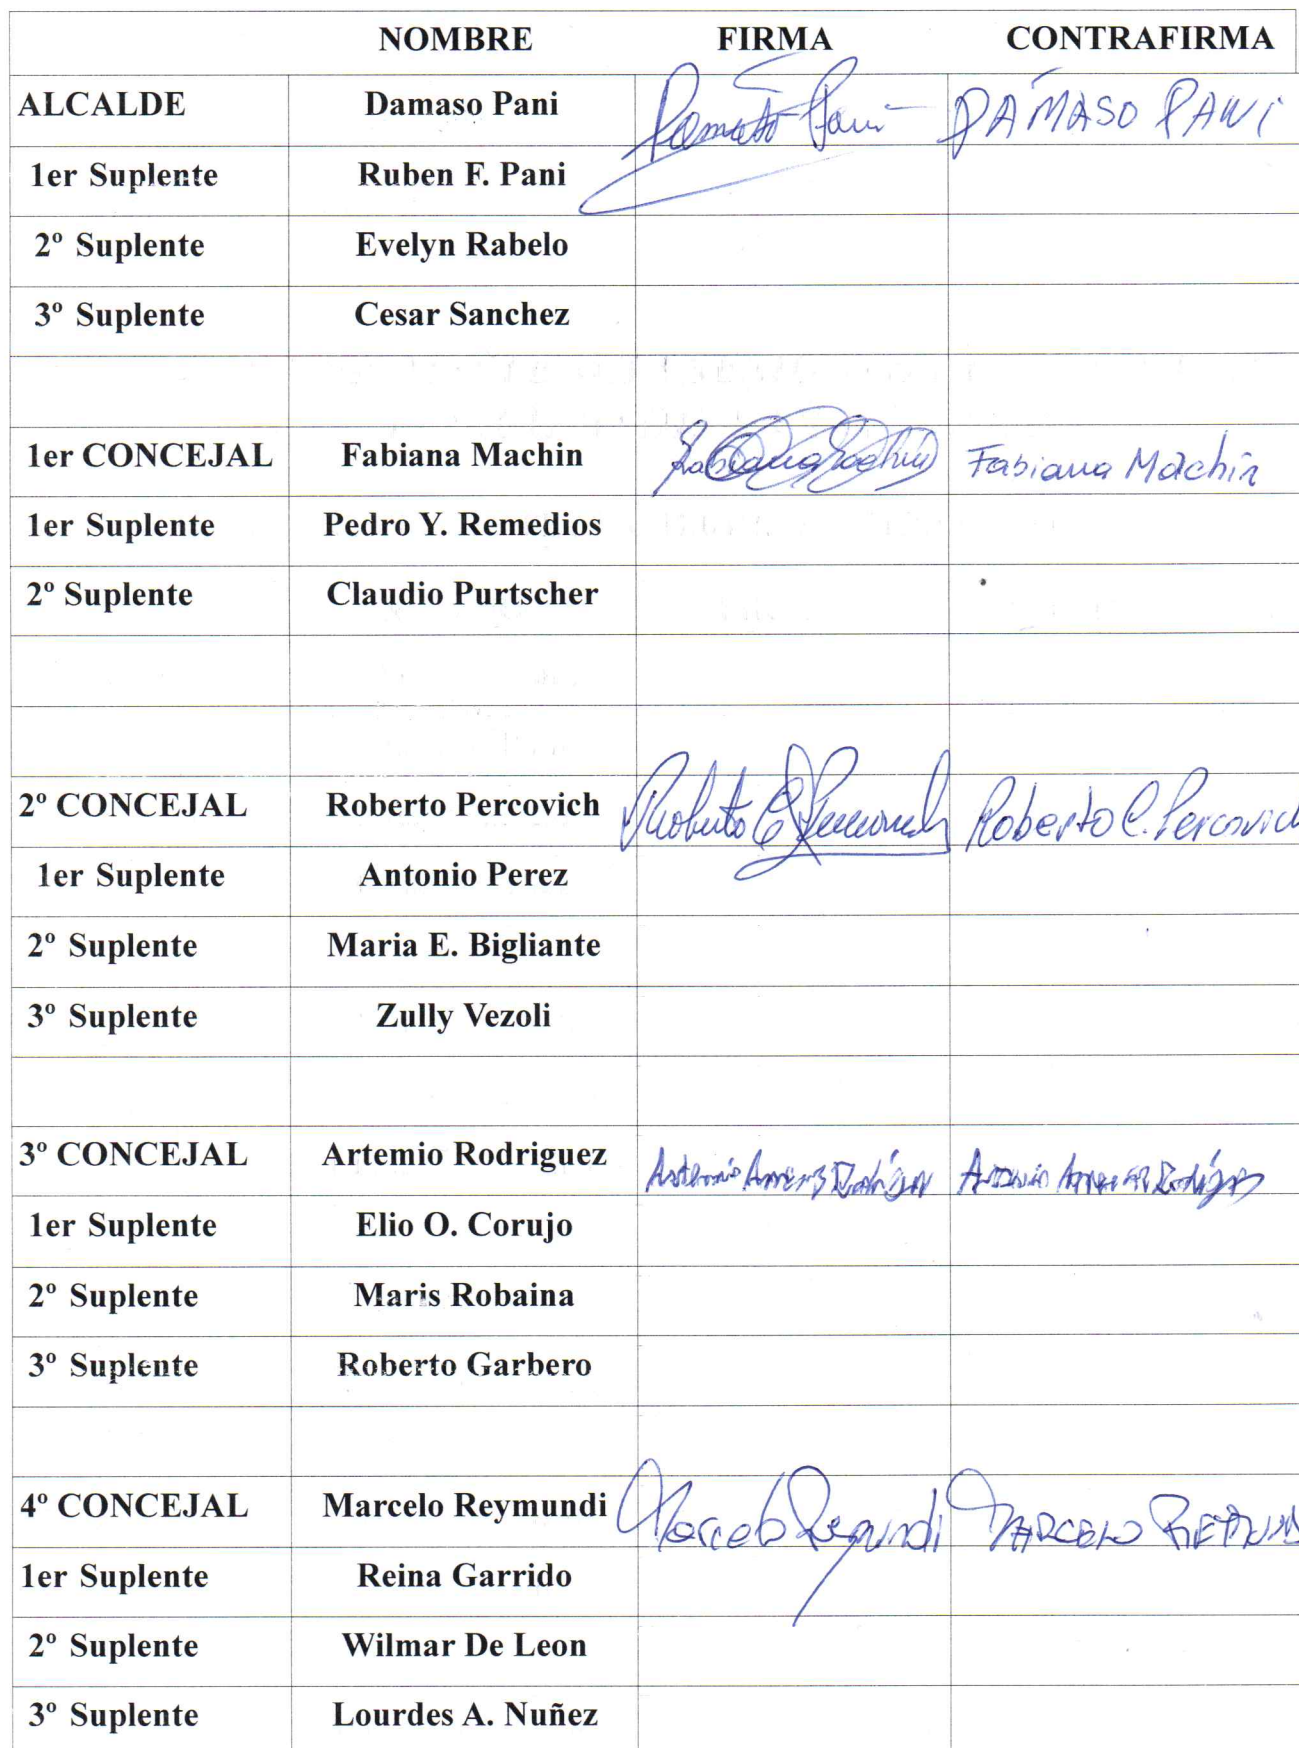 NOMBRE FIRMA CONTRAFIRMA
ALCALDE Damaso Pani Damaso Pani DAMASO PANI
1er Suplente Ruben F. Pani
2º Suplente Evelyn Rabelo
3º Suplente Cesar Sanchez
1er CONCEJAL Fabiana Machin Fabiana Machin Fabiana Machin
1er Suplente Pedro Y. Remedios
2º Suplente Claudio Purtscher
2º CONCEJAL Roberto Percovich Roberto C Percovich Roberto C. Percovich
1er Suplente Antonio Perez
2º Suplente Maria E. Bigliante
3º Suplente Zully Vezoli
3º CONCEJAL Artemio Rodriguez Artemio Rodríguez Artemio Rodríguez
1er Suplente Elio O. Corujo
2º Suplente Maris Robaina
3º Suplente Roberto Garbero
4º CONCEJAL Marcelo Reymundi Marcelo Reymundi MARCELO
1er Suplente Reina Garrido
2º Suplente Wilmar De Leon
3º Suplente Lourdes A. Nuñez